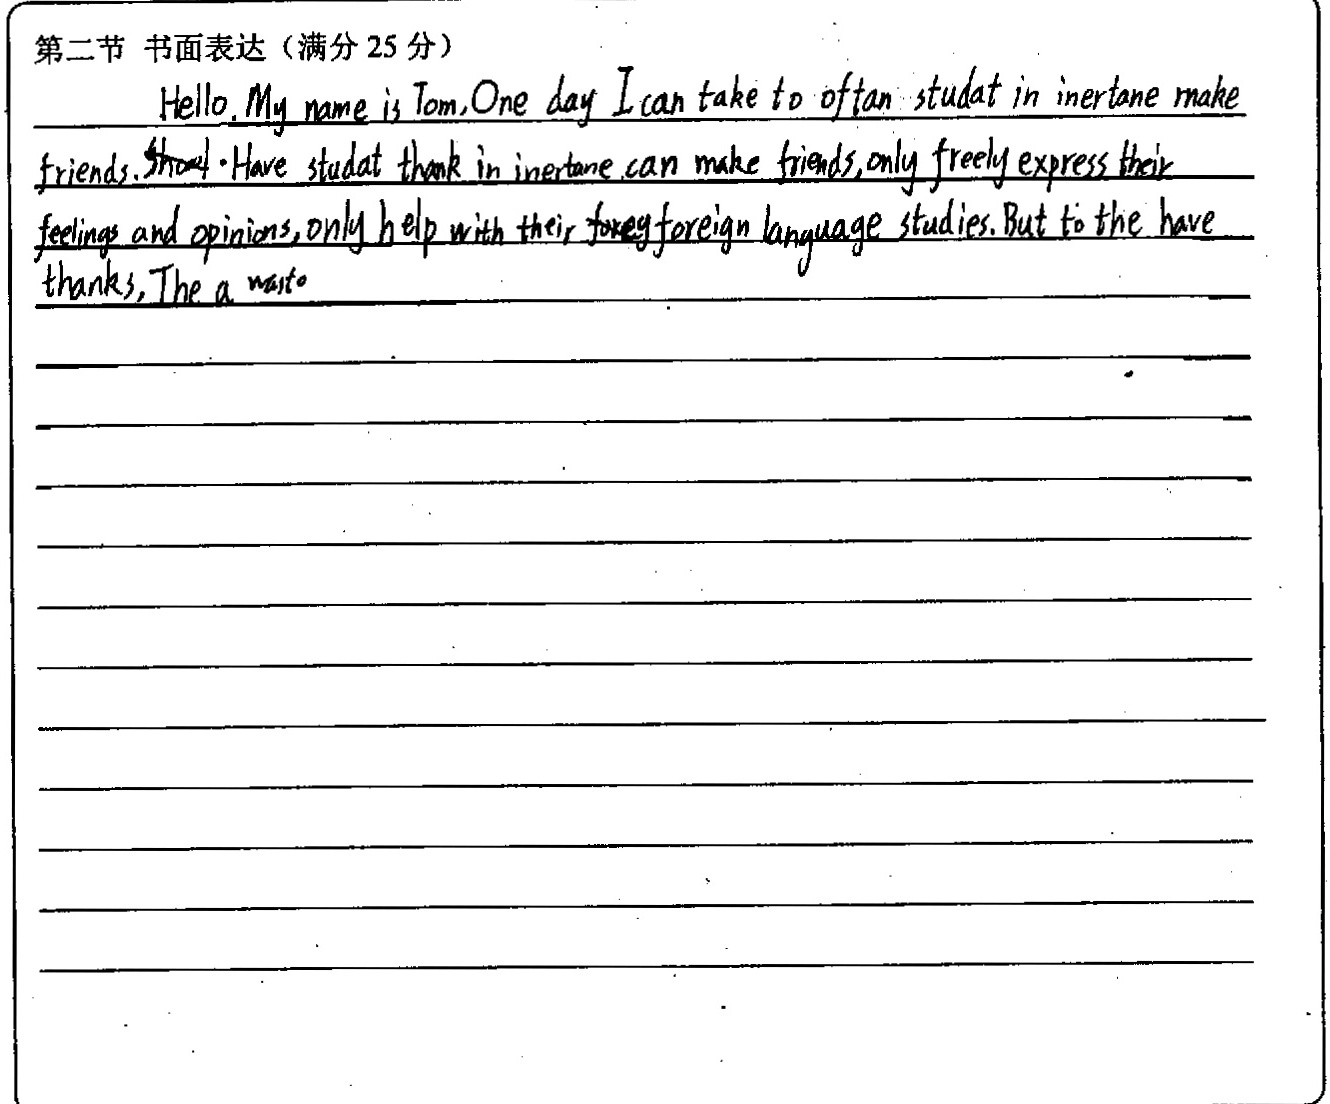 第二节 书面表达（满分 25 分）
Hello. My name is Tom. One day I can take to oftan studat in inertane make
friends. Have studat thank in inertane can make friends, only freely express their
feelings and opinions, only help with their foreign language studies. But to the have
thanks, The a